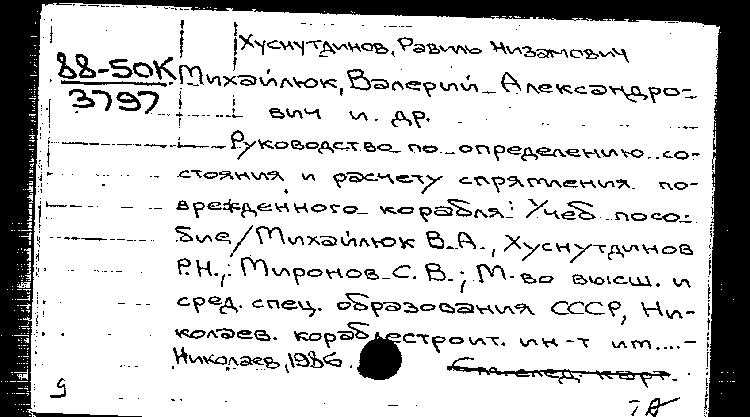 Хуснутдинов, Равиль Низамович
88-50К
3797
Михайлюк, Валерий Александро-
вич и др.
Руководство по определению со-
стояния и расчету спрямления по-
врежденного корабля: Учеб. посо-
бие/Михайлюк В.А., Хуснутдинов
Р.Н., Миронов С. В.; М-во высш. и
сред. спец. образования СССР, Ни-
колаев. кораблестроит. ин-т им....-
Николаев, 1986.
См. след. карт.
9